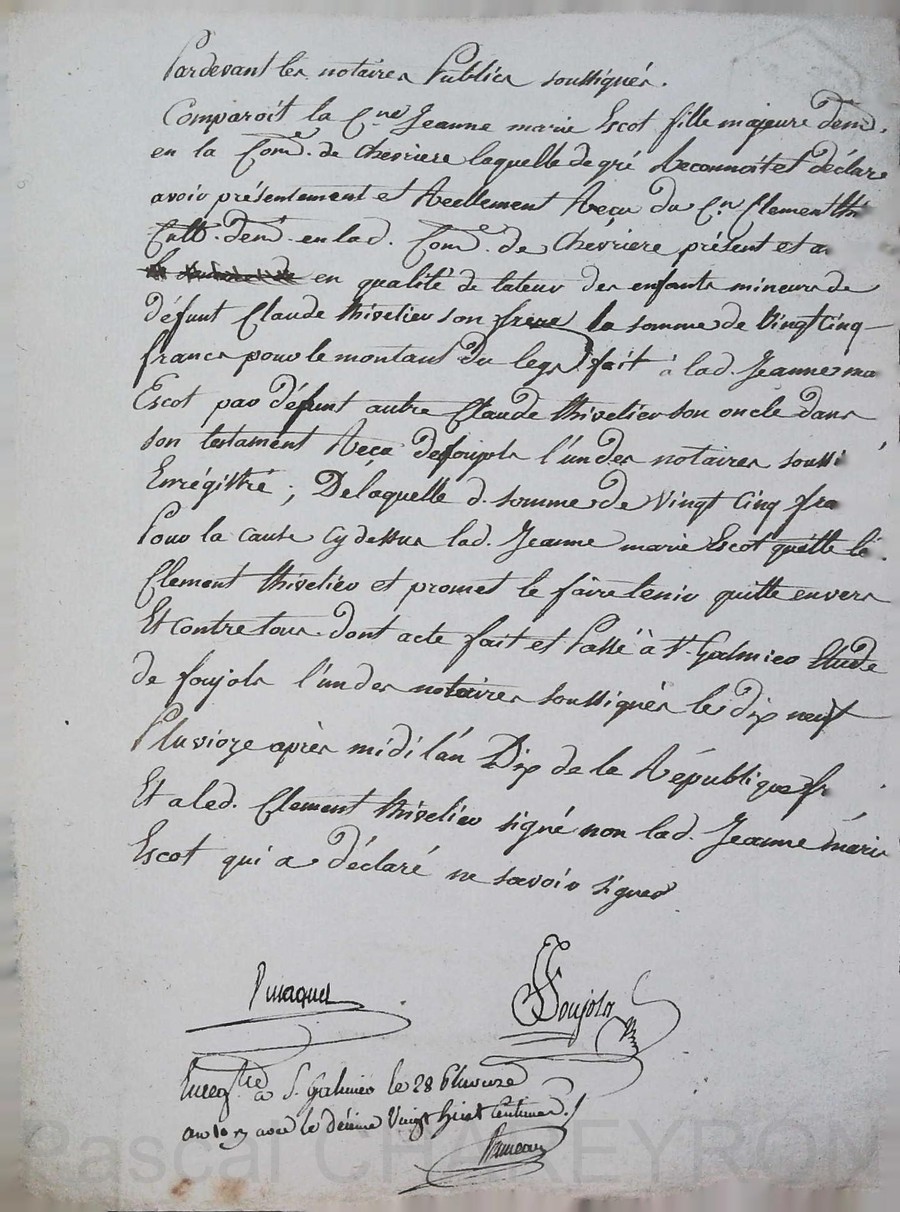 Pardevant les notaires Publics soussignés.
Comparoit la Cne. Jeanne marie Escot fille majeure dem.
en la Com.e de Chevriere laquelle de gré Reconnoit et déclare
avoir présentement et Réellement Reçu du Cn. Clement thi
Cult. dem. en lad. Com.e de Chevriere présent et a
en qualité de tuteur des enfants mineurs de
défunt Claude thivelier son frere la somme de Vingt Cinq
francs pour le montant du legs fait à lad. Jeanne ma
Escot par défunt autre Claude thivelier son oncle dans
son testament Reçu de foujols l'un des notaires soussi
Enrégistré ; De laquelle d. somme de Vingt Cinq fra
Pour la cause cy dessus lad. Jeanne marie Escot quitte le
Clement thivelier et promet le faire tenir quitte envers
Et contre tous. dont acte fait et Passé à St. Galmier Etude
de foujols l'un des notaires soussignés le dix neuf
Pluvioze après midi l'an Dix de la République fr
Et a led. Clement thivelier signé non lad. Jeanne marie
Escot qui a déclaré ne savoir signer
foujols
Enregtré à S. Galmier le 28 Pluviose
an 10 avec le décime Vingt huit Centimes.
Pascal CHAREYRON